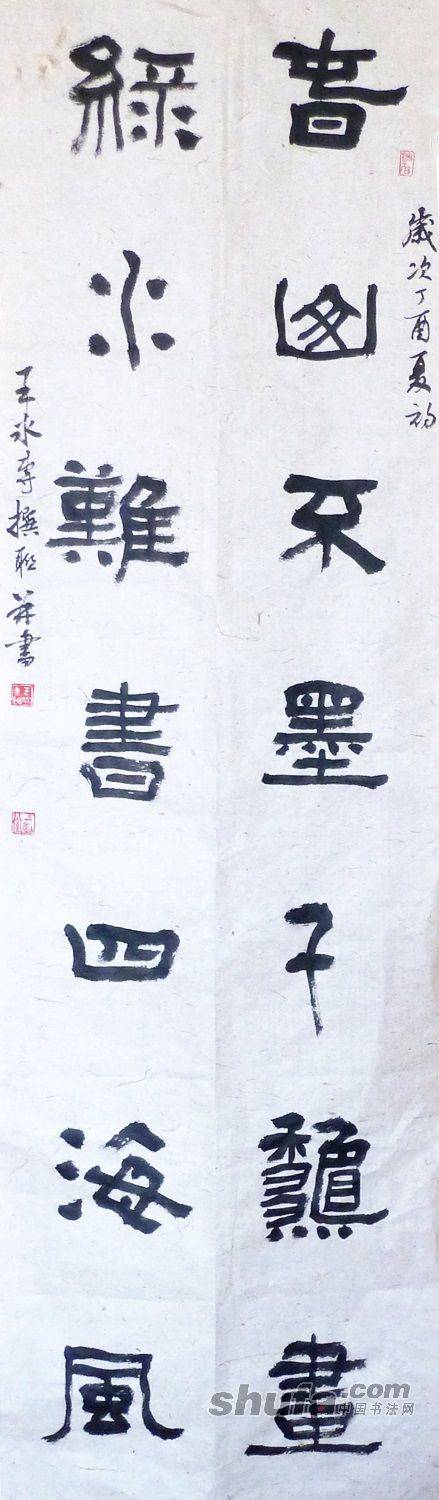 歲次丁酉夏初
青山不墨千龝畫
綠水難書四海風
王撰联并書
shufa.com
中国书法网